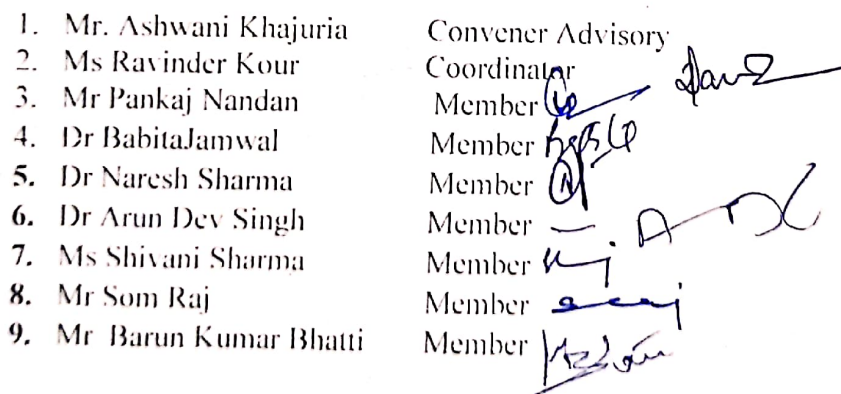 1. Mr. Ashwani Khajuria Convener Advisory
2. Ms Ravinder Kour Coordinator
3. Mr Pankaj Nandan Member
4. Dr BabitaJamwal Member
5. Dr Naresh Sharma Member
6. Dr Arun Dev Singh Member
7. Ms Shivani Sharma Member
8. Mr Som Raj Member
9. Mr Barun Kumar Bhatti Member